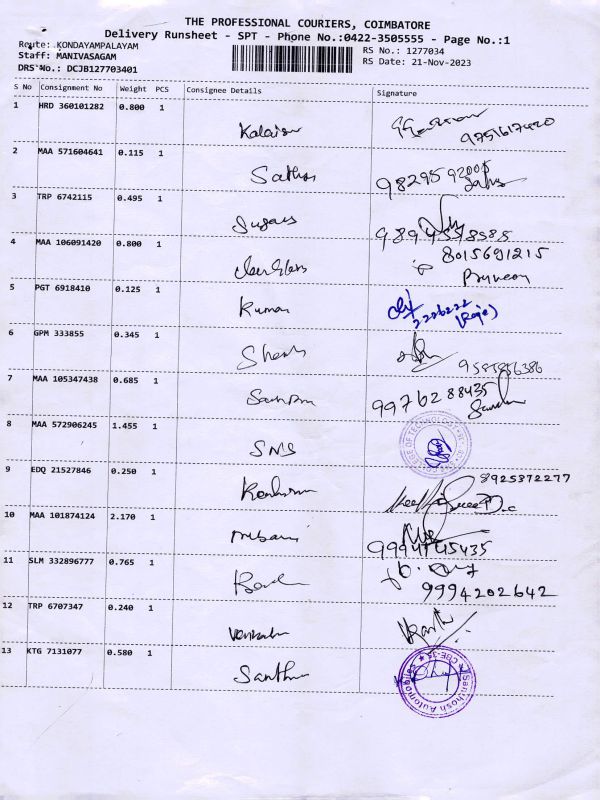 THE PROFESSIONAL COURIERS, COIMBATORE
Delivery Runsheet - SPT - Phone No.:0422-3505555 - Page No.:1
Route: KONDAYAMPALAYAM
Staff: MANIVASAGAM
DRS No.: DCJB127703401
RS No.: 1277034
RS Date: 21-Nov-2023
S No Consignment No Weight PCS Consignee Details Signature
1 HRD 360101282 0.800 1
9751617420
2 MAA 571604641 0.115 1 Sathis
98295 92005
3 TRP 6742115 0.495 1
4 MAA 106091420 0.800 1
8015691215
5 PGT 6918410 0.125 1 Kumar
2226222
(Raje)
6 GPM 333855 0.345 1
9585856386
7 MAA 105347438 0.685 1
9976288435
8 MAA 572906245 1.455 1 SNS
COLLEGE OF TECHNOLOGY
9 EDQ 21527846 0.250 1
8925372277
10 MAA 101874124 2.170 1
11 SLM 332896777 0.765 1
9994202642
12 TRP 6707347 0.240 1
Karthi
13 KTG 7131077 0.580 1 Santhu
Santhosh Automobiles CBE-35